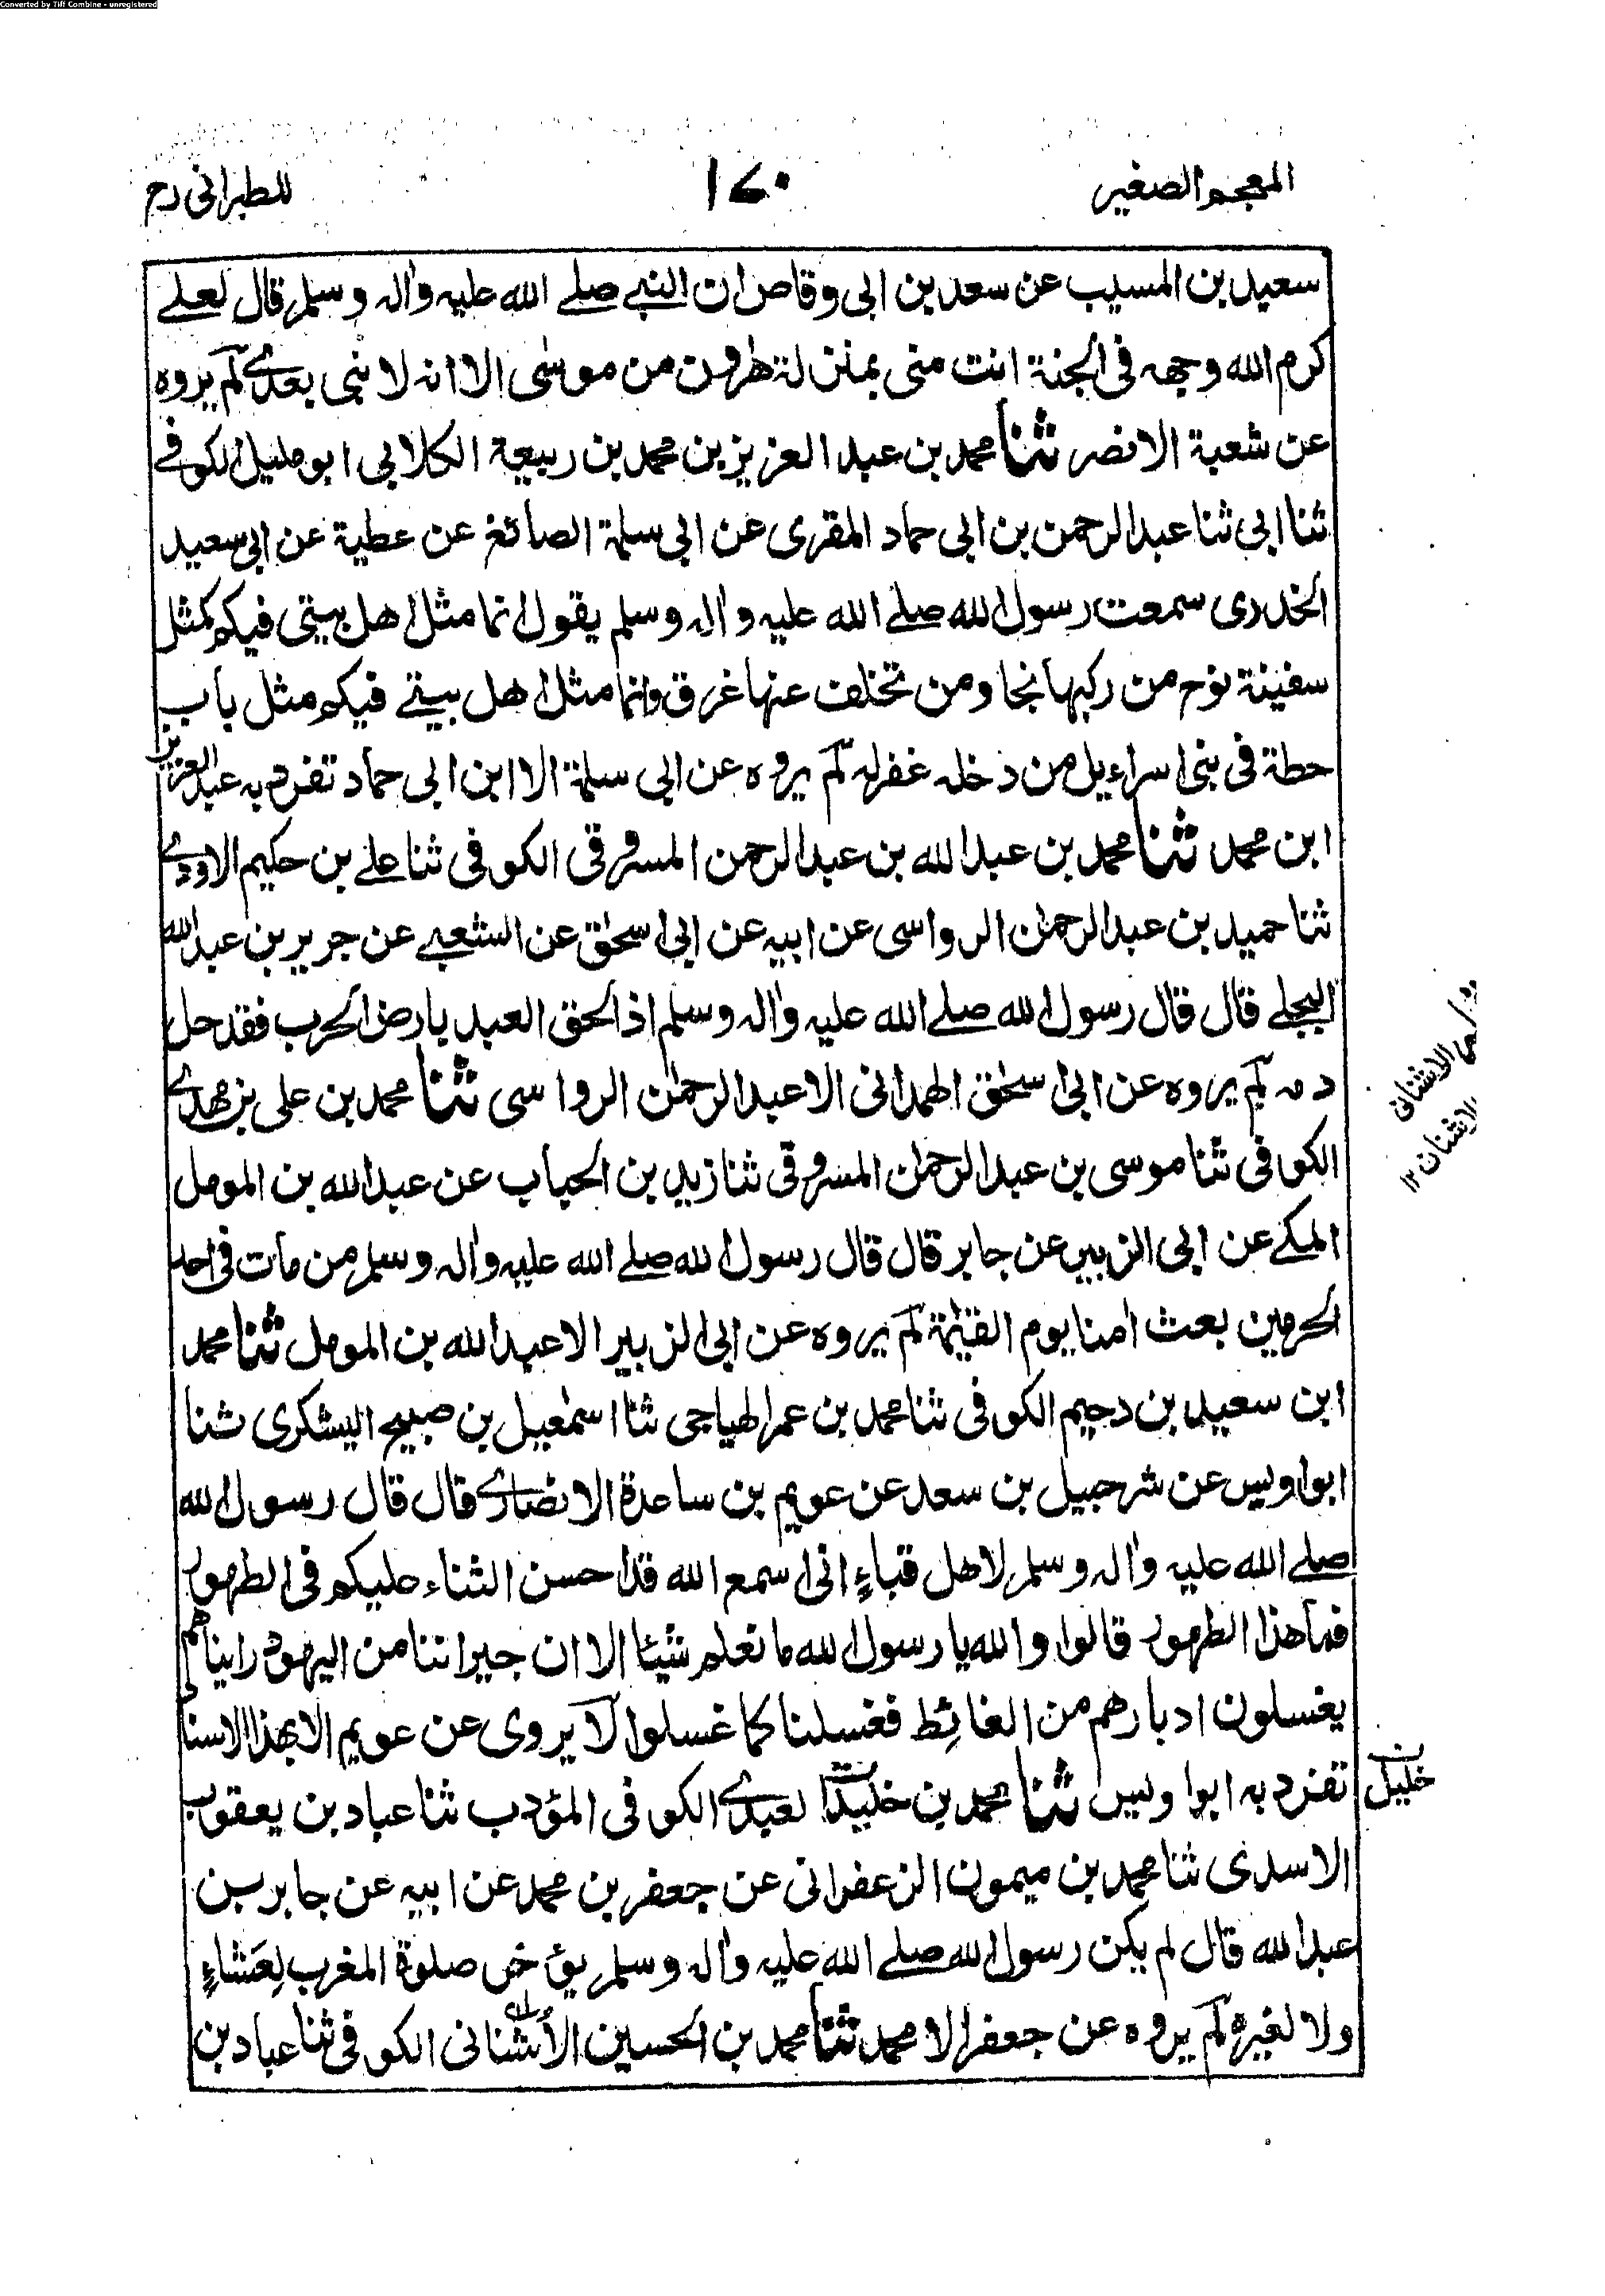 Converted by Tiff Combine - unregistered
المعجم الصغير
١٧٠
للطبرانی رح
سعيد بن المسيب عن سعد بن ابی وقاص ان النبے صلے الله عليه واٰله وسلم قال لعلے
كرم الله وجهه فی الجنة انت منی بمنزلة هٰرون من موسٰی الا انه لا نبی بعدے لم يروه
عن شعبة الا نصر ثنا محمد بن عبد العزيز بن محمد بن ربيعة الكلابی ابو مليل الكوفے
ثنا ابی ثنا عبد الرحمن بن ابی حماد المقری عن ابی سلمة الصائغ عن عطية عن ابی سعيد
الخدری سمعت رسول الله صلے الله عليه واٰله وسلم يقول انما مثل اهل بيتی فيكم كمثل
سفينة نوح من ركبها نجا ومن تخلف عنها غرق وانما مثل اهل بيتے فيكم مثل باب
حطة فی بنی اسراءيل من دخله غفر له لم يروه عن ابی سلمة الا ابن ابی حماد تفرد به عبد العزيز
ابن محمد ثنا محمد بن عبد الله بن عبد الرحمن المسروقی الكوفی ثنا علے بن حكيم الاودے
ثنا حميد بن عبد الرحمٰن الرواسی عن ابيه عن ابی اسحٰق عن الشعبے عن جرير بن عبد الله
البجلے قال قال رسول الله صلے الله عليه واٰله وسلم اذا لحق العبد بارض الحرب فقد حل
دمه لم يروه عن ابی اسحٰق الهمدانی الا عبد الرحمٰن الرواسی ثنا محمد بن علی بن مهدے
الكوفی ثنا موسی بن عبد الرحمٰن المسروقی ثنا زيد بن الحباب عن عبد الله بن المومل
المكے عن ابی الزبير عن جابر قال قال رسول الله صلے الله عليه واٰله وسلم من مات فی احد
الحرمين بعث امنا يوم القيٰمة لم يروه عن ابی الزبير الا عبد الله بن المومل ثنا محمد
ابن سعيد بن دحيم الكوفی ثنا محمد بن عمر الهياجی ثنا اسمٰعيل بن صبيح اليشكری ثنا
ابو اويس عن شرحبيل بن سعد عن عويم بن ساعدة الانصارے قال قال رسول الله
صلے الله عليه واٰله وسلم لاهل قباءٍ انی اسمع الله قد احسن الثناء عليكم فی الطهور
فما هذا الطهور قالوا والله يا رسول الله ما نعلم شيئا الا ان جيراننا من اليهود راينا هم
يغسلون ادبارهم من الغائط فغسلنا كما غسلوا لا يروی عن عويم الا بهذا الاسنا
تفرد به ابو اويس ثنا محمد بن خليد العبدے الكوفی المؤدب ثنا عباد بن يعقوب
خليل
الاسدی ثنا محمد بن ميمون الزعفرانی عن جعفر بن محمد عن ابيه عن جابر بن
عبد الله قال لم يكن رسول الله صلے الله عليه واٰله وسلم يؤخر صلوة المغرب لِعَشاءٍ
ولا لغيره لم يروه عن جعفر الا محمد ثنا محمد بن الحسين الأشنانی الكوفی ثنا عباد بن
الاشنانی
الاشنان ١٢